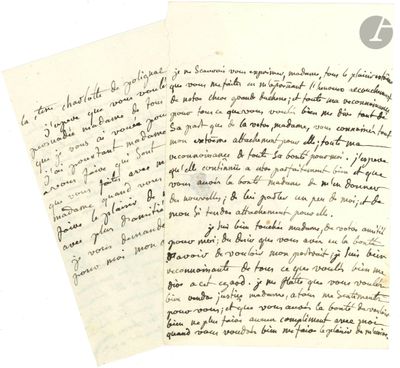 la ctesse charlotte de polignac
j'espere que vous voule
persuadée madame de tous
que je vous ai vouées pou
j'ai pourtant madame
avous faire que sont
que vous faites avec m
madame quand vous
faire le plaisir de
avec plus d'amitié
je vous demande
pour moi mon
je ne scaurois vous exprimer, madame, tous le plaisir
que vous me faites en m'aprenant l'heureux accouchement
de notre chere grande duchesse; et toute ma reconnoissance
pour tous ce que vous voulés bien me dire tant de
sa part que de la votre, madame, vous connoissés tout
mon extreme attachement pour elle; toute ma
reconnoissance de toute sa bonté pour moi. j'espere
qu'elle continuë a etre parfaitement bien et que
vous aurés la bonté madame de m'en donner
des nouvelles; de lui parler un peu de moi; et de
mon si tendre attachement pour elle.
je suis bien touchée madame, de votre amitié
pour moi; du desir que vous avés eu la bonté
d'avoir de vouloir mon portrait; je suis bien
reconnoissante de tous ce que voulés bien me
dire a cet egard. je me flatte que vous voulés
bien rendre justice madame, a tous mes sentiments
pour vous; et que vous aurés la bonté de vouloir
bien ne plus faire aucun compliment avec moi
quand vous voudrés bien me faire le plaisir de m'écrire